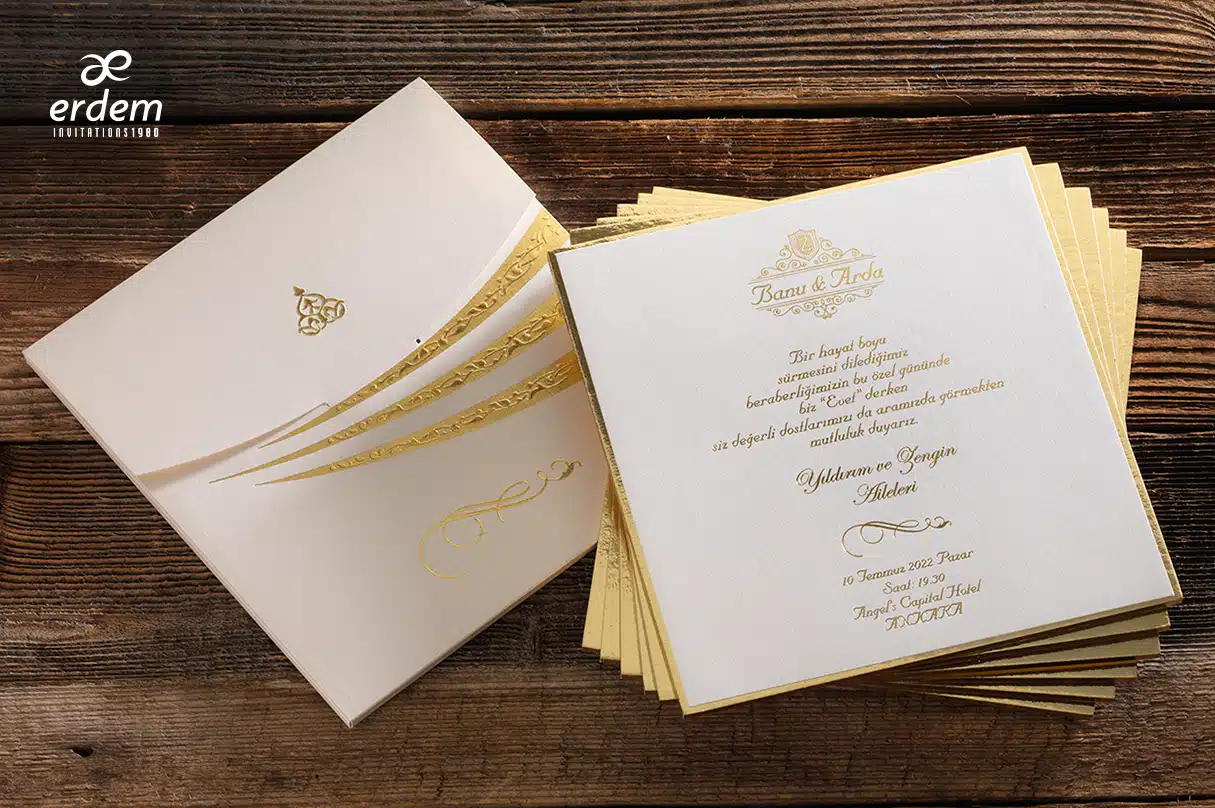 erdem
INVITATIONS1980
Banu & Arda
Bir hayat boyu
sürmesini dilediğimiz
beraberliğimizin bu özel gününde
biz “Evet” derken
siz değerli dostlarımızı da aramızda görmekten
mutluluk duyarız.
Yıldırım ve Zengin
Aileleri
10 Temmuz 2022 Pazar
Saat: 19.30
Angel's Capital Hotel
ANKARA